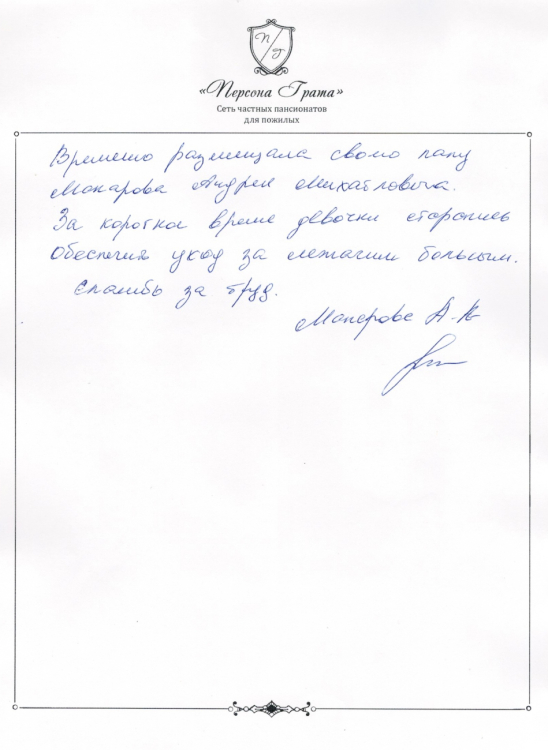 П/Г
«Персона Грата»
Сеть частных пансионатов
для пожилых
Временно размещала свою папу
Макарова Андрея Михайловича.
За короткое время девочки старались
обеспечить уход за лежачим больным.
Спасибо за труд.
Макарова А.